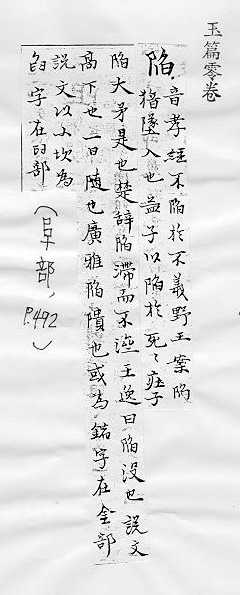 玉篇零卷
陷 音孝經不陷於不義野王案陷
猶墜入也孟子以陷於死〻疰子
陷大矛是也楚辭陷滯而不濟王逸曰陷没也說文
高下也一曰随也廣雅陷隤也或為錎字在金部
說文以小坎為
臽字在臼部
（阜部，
P.492
）